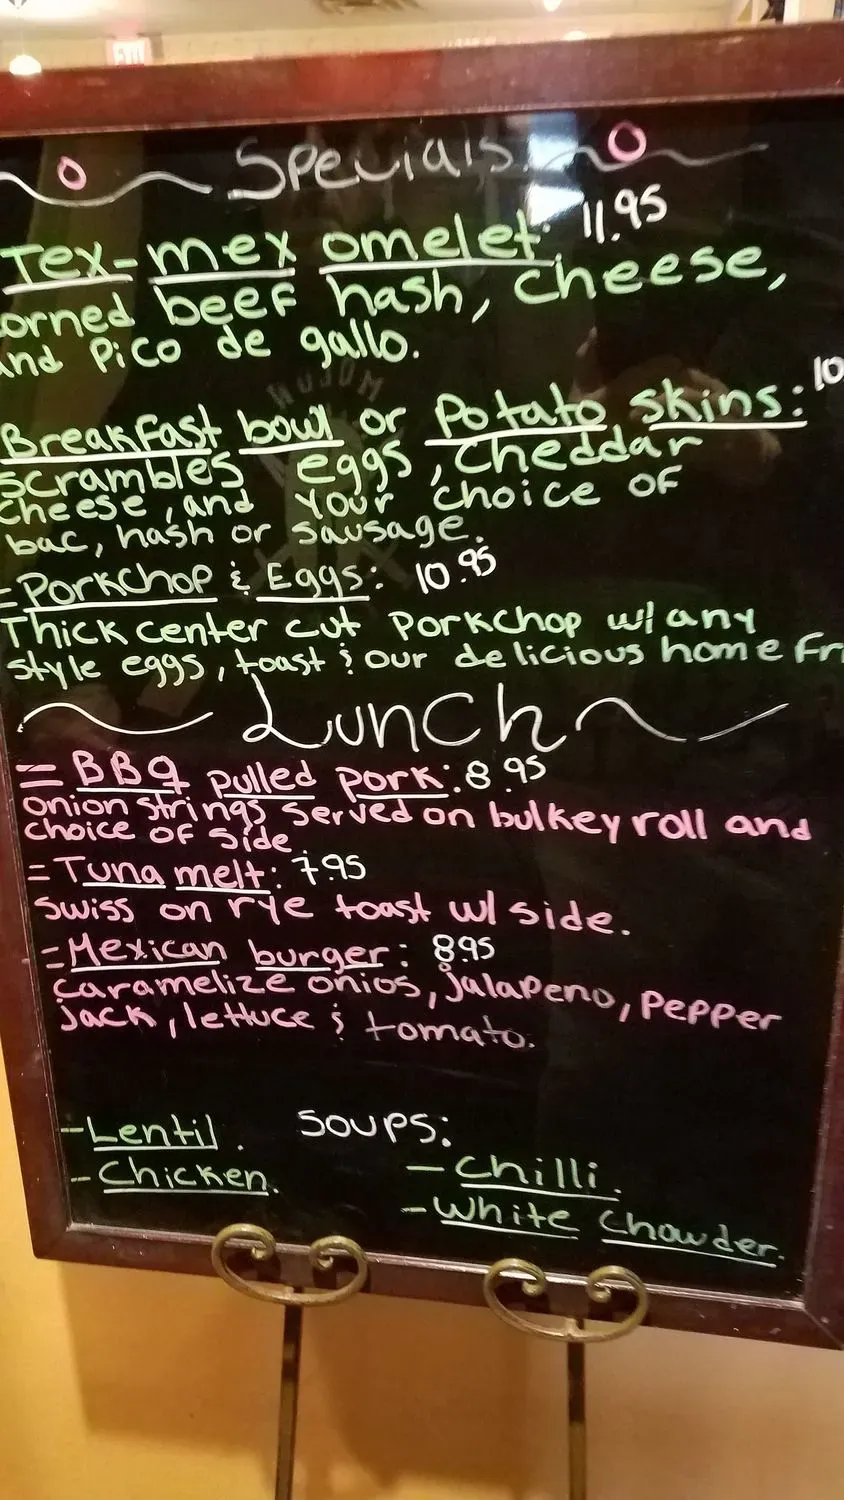 EXIT
Specials
Tex-mex omelet: 11.95
orned beef hash, cheese,
and Pico de gallo.
Breakfast bowl or Potato skins: 10
scrambles eggs, cheddar
cheese, and your choice of
bac, hash or sausage.
-Porkchop & Eggs: 10.95
Thick center cut porkchop w/ any
style eggs, toast & our delicious home Fr
Lunch
= BBQ pulled pork: 8.95
onion strings served on bulkey roll and
choice of side.
= Tuna melt: 7.95
swiss on rye toast w/ side.
= Mexican burger: 8.95
caramelize onios, jalapeno, pepper
jack, lettuce & tomato.
Soups:
- Lentil.
- Chicken.
- Chilli.
- White Chowder.